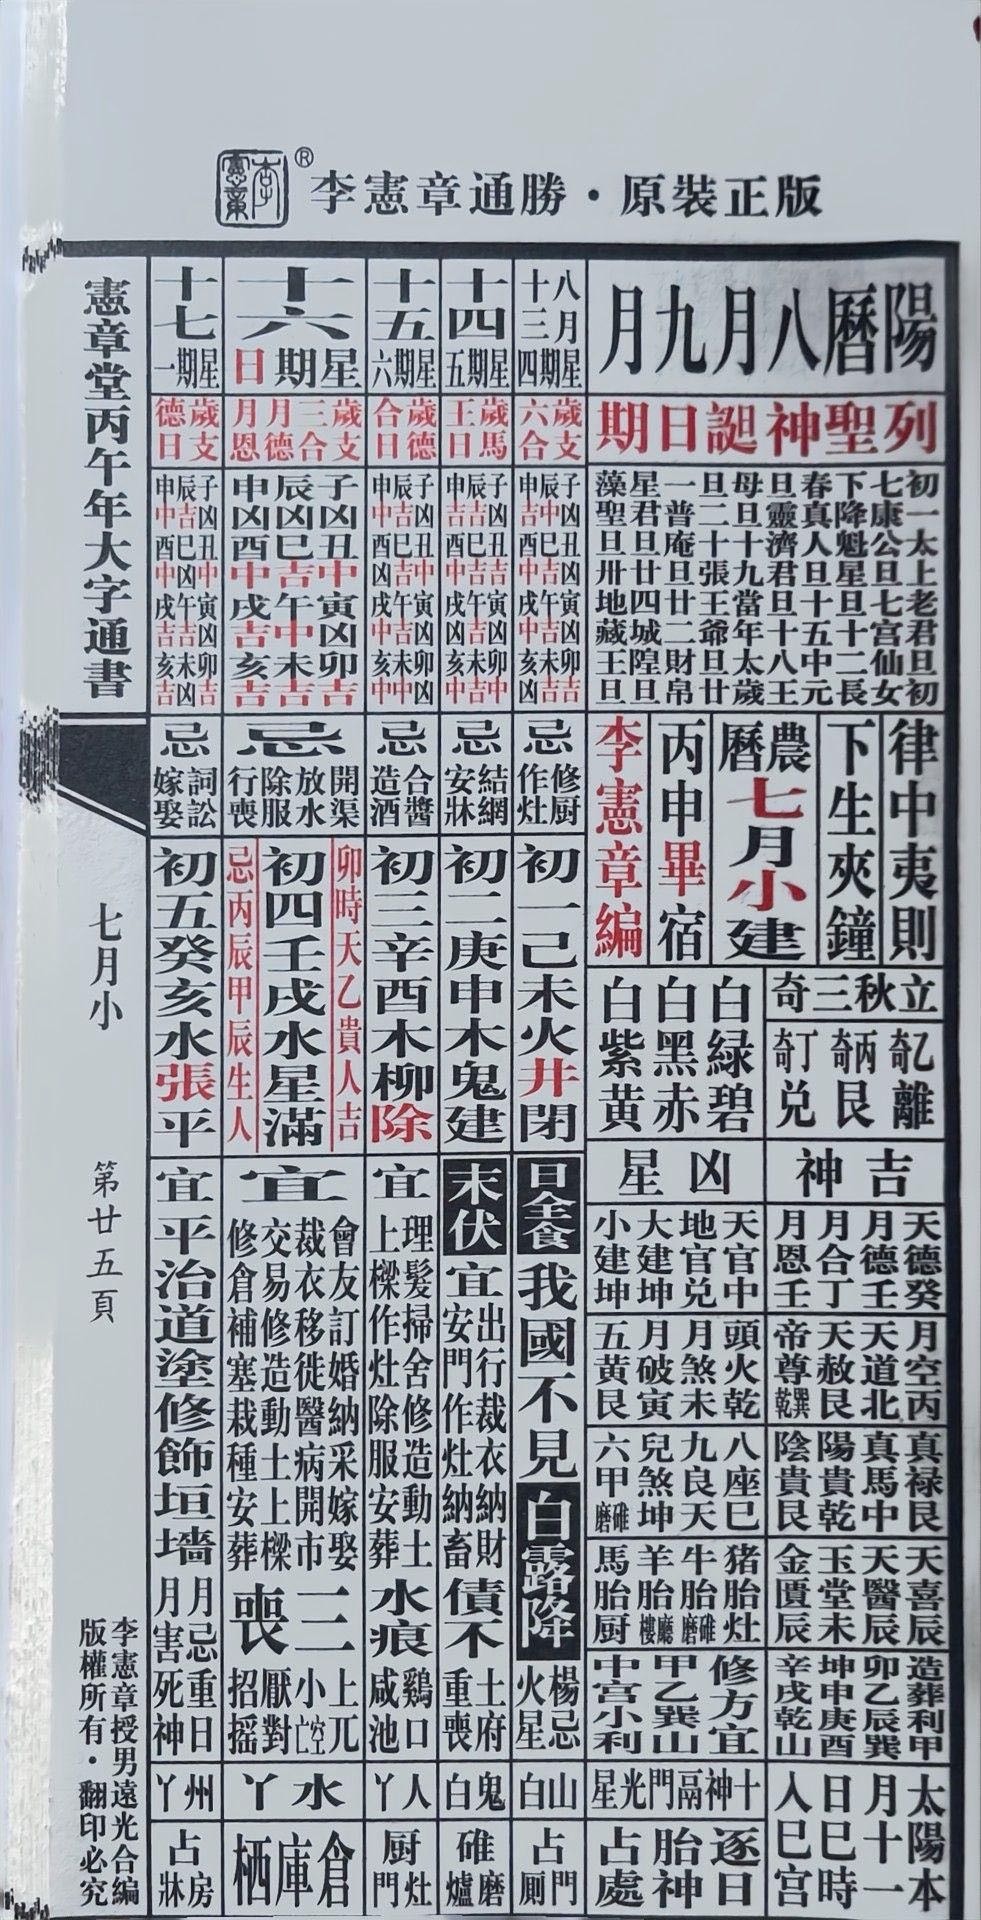 李憲章
®
李憲章通勝・原裝正版
陽曆八月九月
列聖神誕日期
初一太上老君旦初
七康公旦七宮仙女
下降魁星旦十二長
春真人旦十五中元
旦靈濟君旦十八王
母旦十九當年太歲
旦二十張王爺旦廿
一普庵旦廿二財帛
星君旦廿四城隍旦
藻聖旦卅地藏王旦
律中夷則
下生夾鐘
農曆七月小建
丙申畢宿
李憲章編
立秋三奇
乙奇離
丙奇艮
丁奇兌
白綠碧
白黑赤
白紫黃
吉神
天德癸
月德壬
月合丁
月恩壬
月空丙
天道北
天赦艮
帝尊乾巽
真祿艮
真馬中
陽貴乾
陰貴艮
天喜辰
天醫辰
玉堂未
金匱辰
造葬利甲
卯乙辰巽
坤申庚酉
辛戌乾山
太陽本
月十一
日巳時
入巳宮
凶星
天官中
地官兌
大建坤
小建坤
頭火乾
月煞未
月破寅
五黃艮
八座巳
九良天
兒煞坤
六甲碓磨
猪胎灶
牛胎碓磨
羊胎廳樓
馬胎厨
修方宜
甲乙巽山
中宮小利
十神鬲門光星
逐日
胎神
占處
八月十三
星期四
歲支六合
忌
修厨
作灶
初一己未火井閉
日全食
我國不見
白露降
楊忌
火星
山白
門
占厠
十四
星期五
歲馬
王日
忌
結網
安牀
初二庚申木鬼建
末伏
宜
出行裁衣納財
安門作灶納畜
債不
土府
重喪
鬼白
碓磨爐
十五
星期六
歲德
合日
忌
合醬
造酒
初三辛酉木柳除
宜
理髮掃舍修造動土
上樑作灶除服安葬
水痕
鷄口
咸池
人丫
厨灶門
十六
星期日
歲支
三合
月德
月恩
忌
開渠
放水
除服
行喪
卯時天乙貴人吉
初四壬戌水星滿
忌丙辰甲辰生人
宜
會友訂婚納采嫁娶
裁衣移徙醫病開市
交易修造動土上樑
修倉補塞栽種安葬
三喪
上兀
小空亡
厭對
招搖
水丫
倉庫栖
十七
星期一
歲支
德日
忌
詞訟
嫁娶
初五癸亥水張平
宜
平治道塗修飾垣墻
月忌
月害
重日
死神
州丫
占房牀
憲章堂丙午年大字通書
七月小
第廿五頁
李憲章授男遠光合編
版權所有・翻印必究